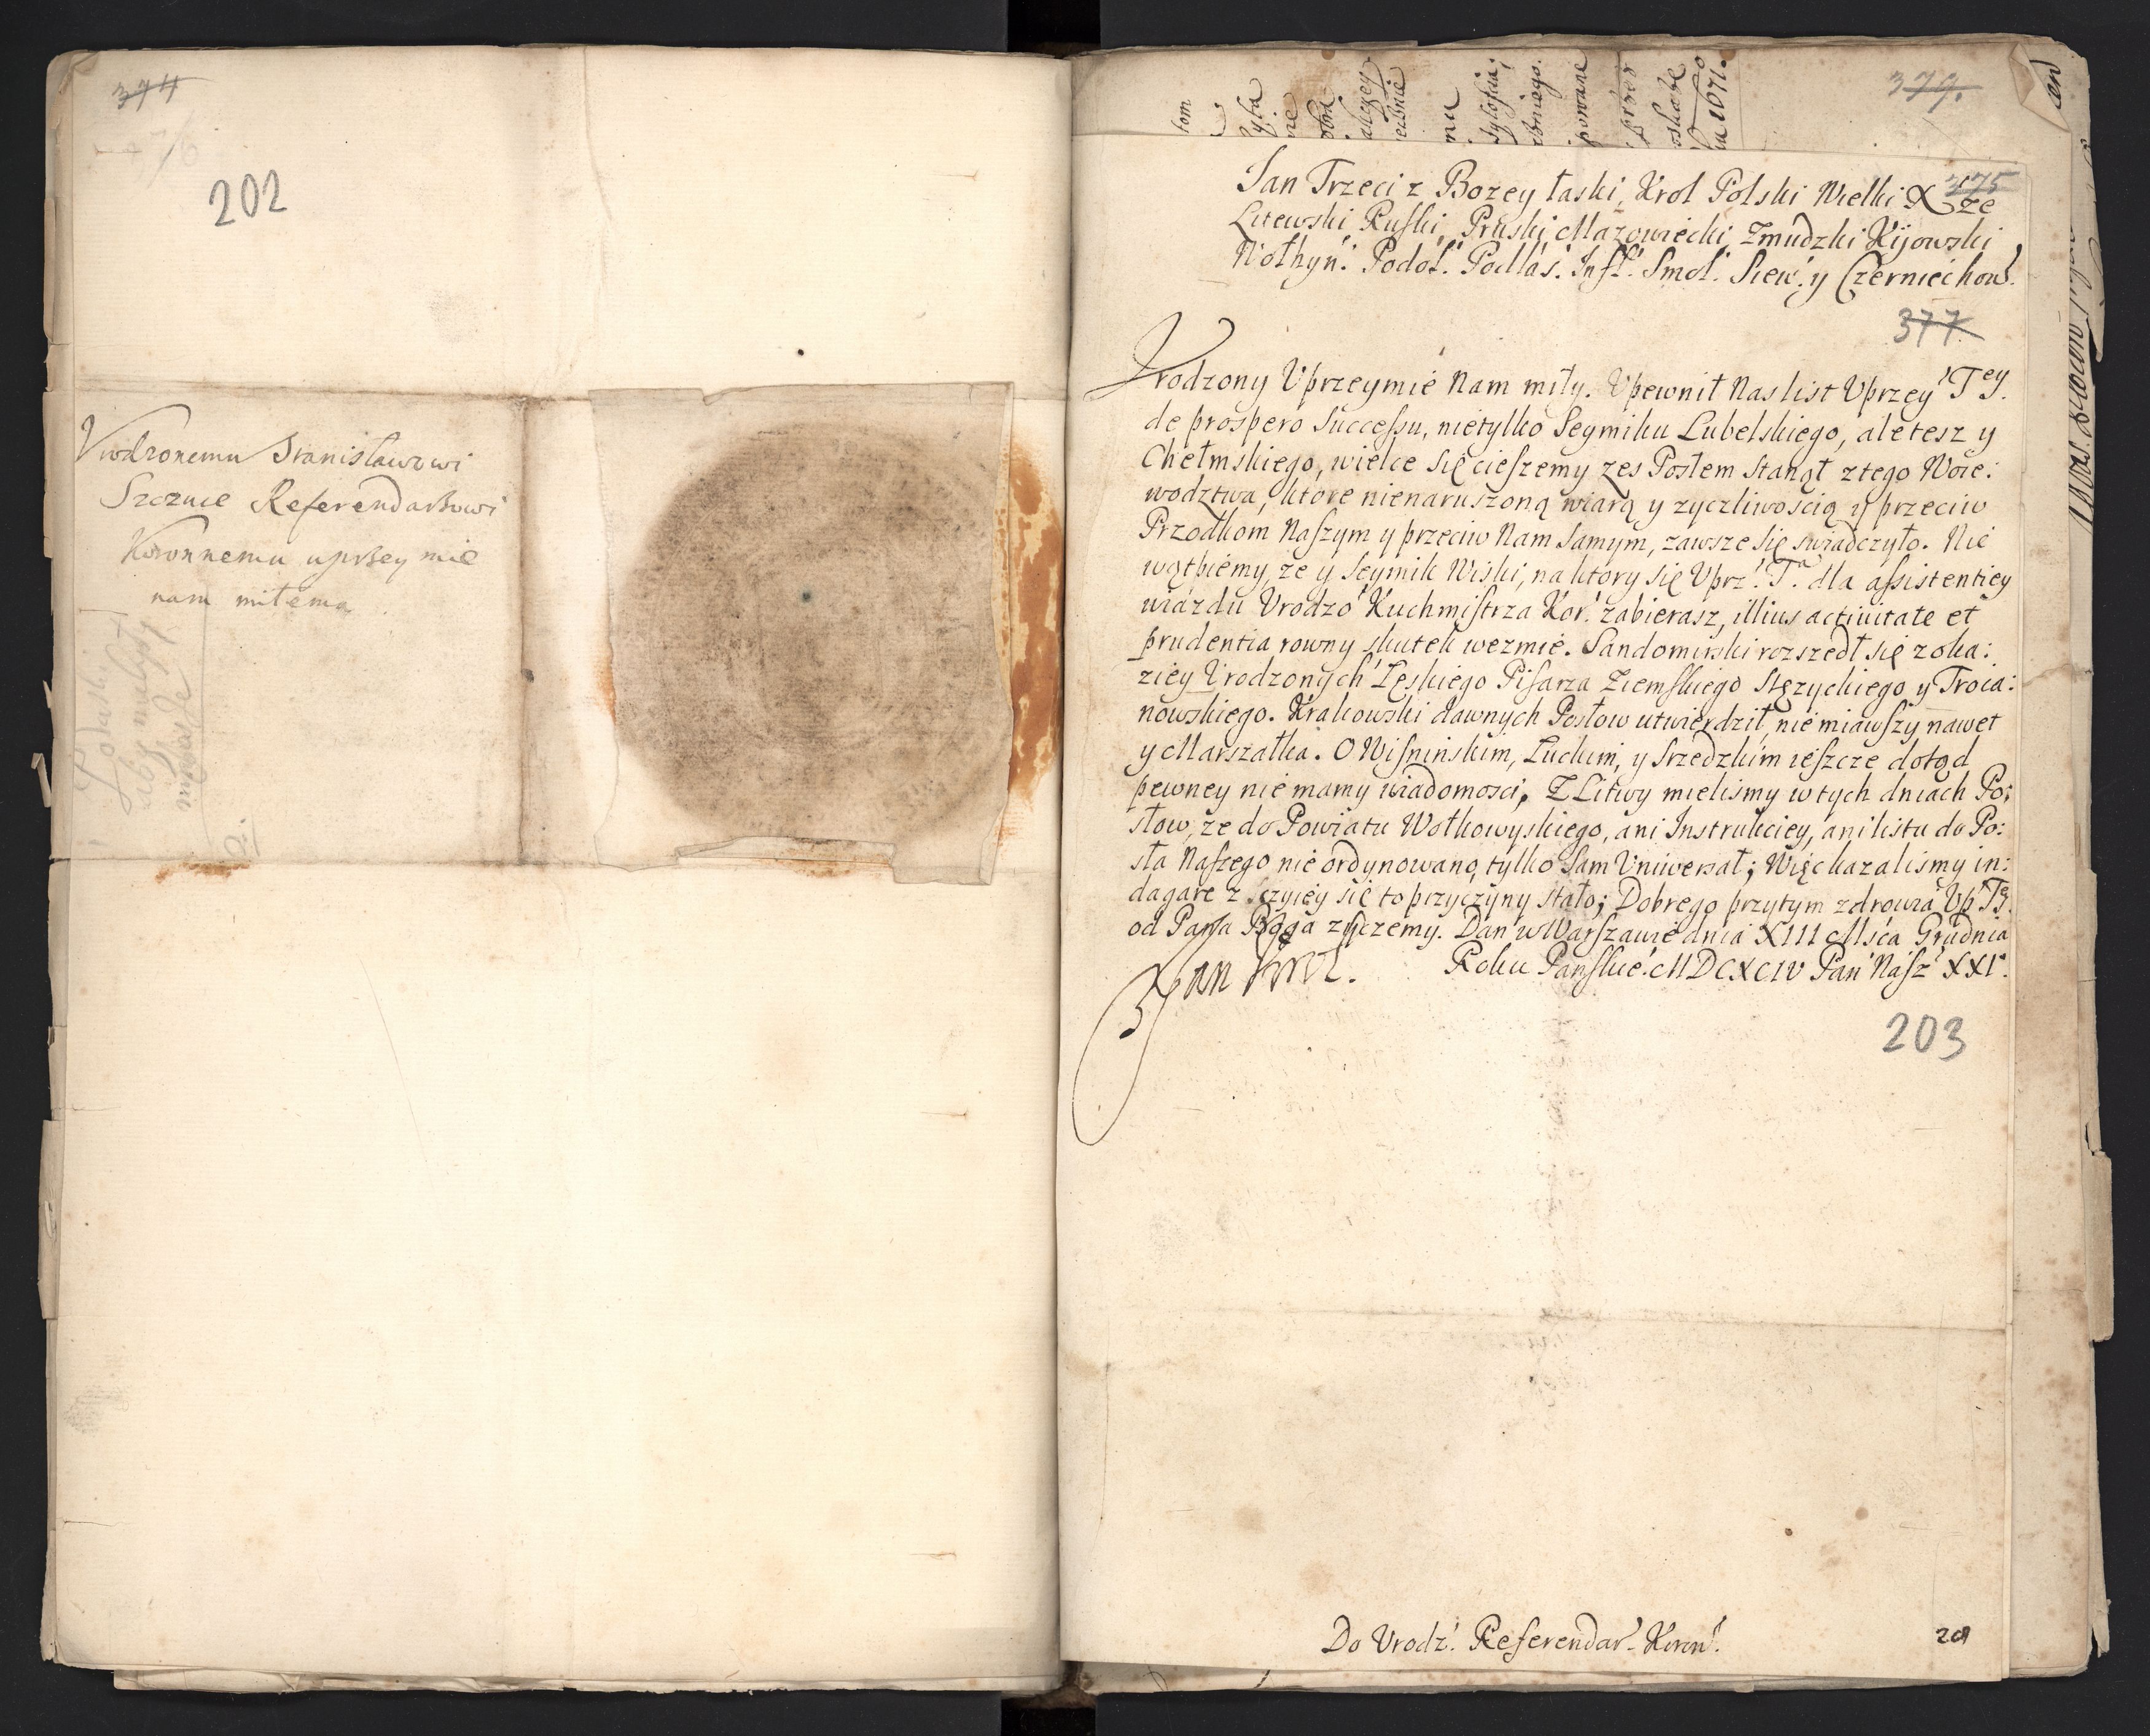 374
202
Vrodzonemu Stanisławowi
Szczuce Referendarzowi
Koronnemu uprzeymie
nam miłemu
379.
375
Jan Trzeci z Bozey łaski, Krol Polski Wielki Xże
Litewski, Ruski, Pruski, Mazowiecki, Zmudzki Kijowski
Wołhyń: Podol: Podlas: Infl: Smol: Siew: y Czerniechow:
377
Vrodzony Vprzeymie Nam miły. Vpewnił Nas list Vprzey: Tey.
de prospero Successu, nietylko Seymiku Lubelskiego, ale tesz y
Chełmskiego, wielce się cieszemy zes Posłem stanął z tego Woie:
wodztwa, ktore nienaruszoną wiarą y zyczliwoscią y przeciw
Przodkom Naszym y przeciw Nam samym, zawsze się swiadczyło. Nie
wątpiemy, ze y Seymik Wiski, na ktory się Vprz: Ta. dla assistentiey
wiazdu Vrodzo Kuchmistrza Kor: zabierasz, illius activitate et
prudentia rowny skutek wezmie. Sandomirski rozszedł się z oka:
ziey Vrodzonych Łęskiego Pisarza Ziemskiego Stęzyckiego y Troia:
nowskiego. Krakowski dawnych Posłow utwierdził, nie miawszy nawet
y Marszałka. O Wisninskim, Łuckim, y Srzedzkim ieszcze dotąd
pewney nie mamy wiadomosci, Z Litwy mielismy w tych dniach Po:
słow, ze do Powiatu Wołkowyskiego, ani Instrukciey, ani listu do Po:
sła Naszego nie ordynowano, tylko Sam Vniwersał; Więc kazalismy in:
dagare z czyiey się to przyczyny stało; Dobrego przytym zdrowia Vp: Tę.
od Pana Boga zyczemy. Dan w Warszawie dnia XIII Msca Grudnia
Roku Panskie: MDCXCIV Pan: Nasz: XXI.
Jan Krol.
203
Do Vrodz: Referendar: Koron: